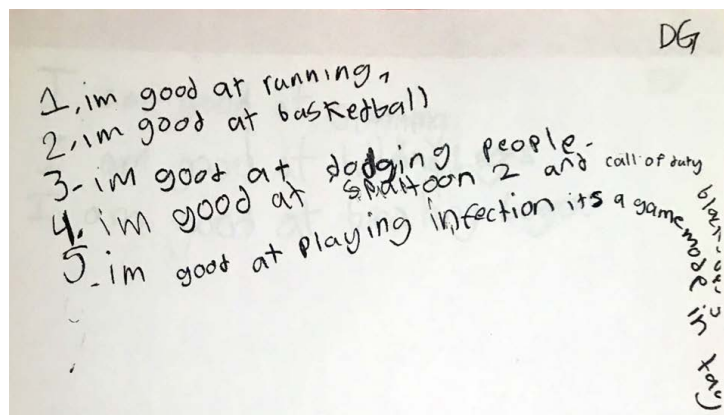 DG
1, im good at running,
2, im good at basketball
3- im good at dodging people.
4. im good at Splattoon 2 and call of duty black
5. im good at playing infection its a game mode in tag